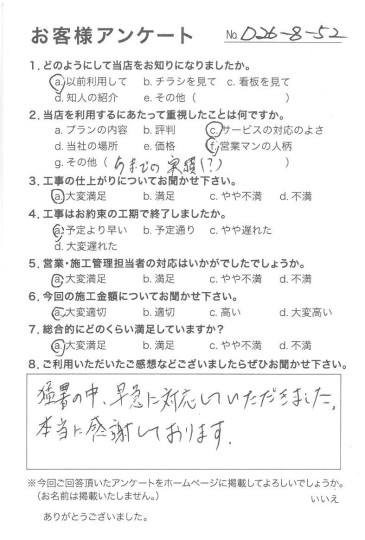 お客様アンケート No D26-8-52
1. どのようにして当店をお知りになりましたか。
a. 以前利用して b. チラシを見て c. 看板を見て
d. 知人の紹介 e. その他( )
2. 当店を利用するにあたって重視したことは何ですか。
a. プランの内容 b. 評判 c. サービスの対応のよさ
d. 当社の場所 e. 価格 f. 営業マンの人柄
g. その他(今までの実績(?))
3. 工事の仕上がりについてお聞かせ下さい。
a. 大変満足 b. 満足 c. やや不満 d. 不満
4. 工事はお約束の工期で終了しましたか。
a. 予定より早い b. 予定通り c. やや遅れた
d. 大変遅れた
5. 営業・施工管理担当者の対応はいかがでしたでしょうか。
a. 大変満足 b. 満足 c. やや不満 d. 不満
6. 今回の施工金額についてお聞かせ下さい。
a. 大変適切 b. 適切 c. 高い d. 大変高い
7. 総合的にどのくらい満足していますか?
a. 大変満足 b. 満足 c. やや不満 d. 不満
8. ご利用いただいたご感想などございましたらぜひお聞かせ下さい。
猛暑の中、早急に対応していただきました。
本当に感謝しております。
※今回ご回答頂いたアンケートをホームページに掲載してよろしいでしょうか。
(お名前は掲載いたしません。) いいえ
ありがとうございました。